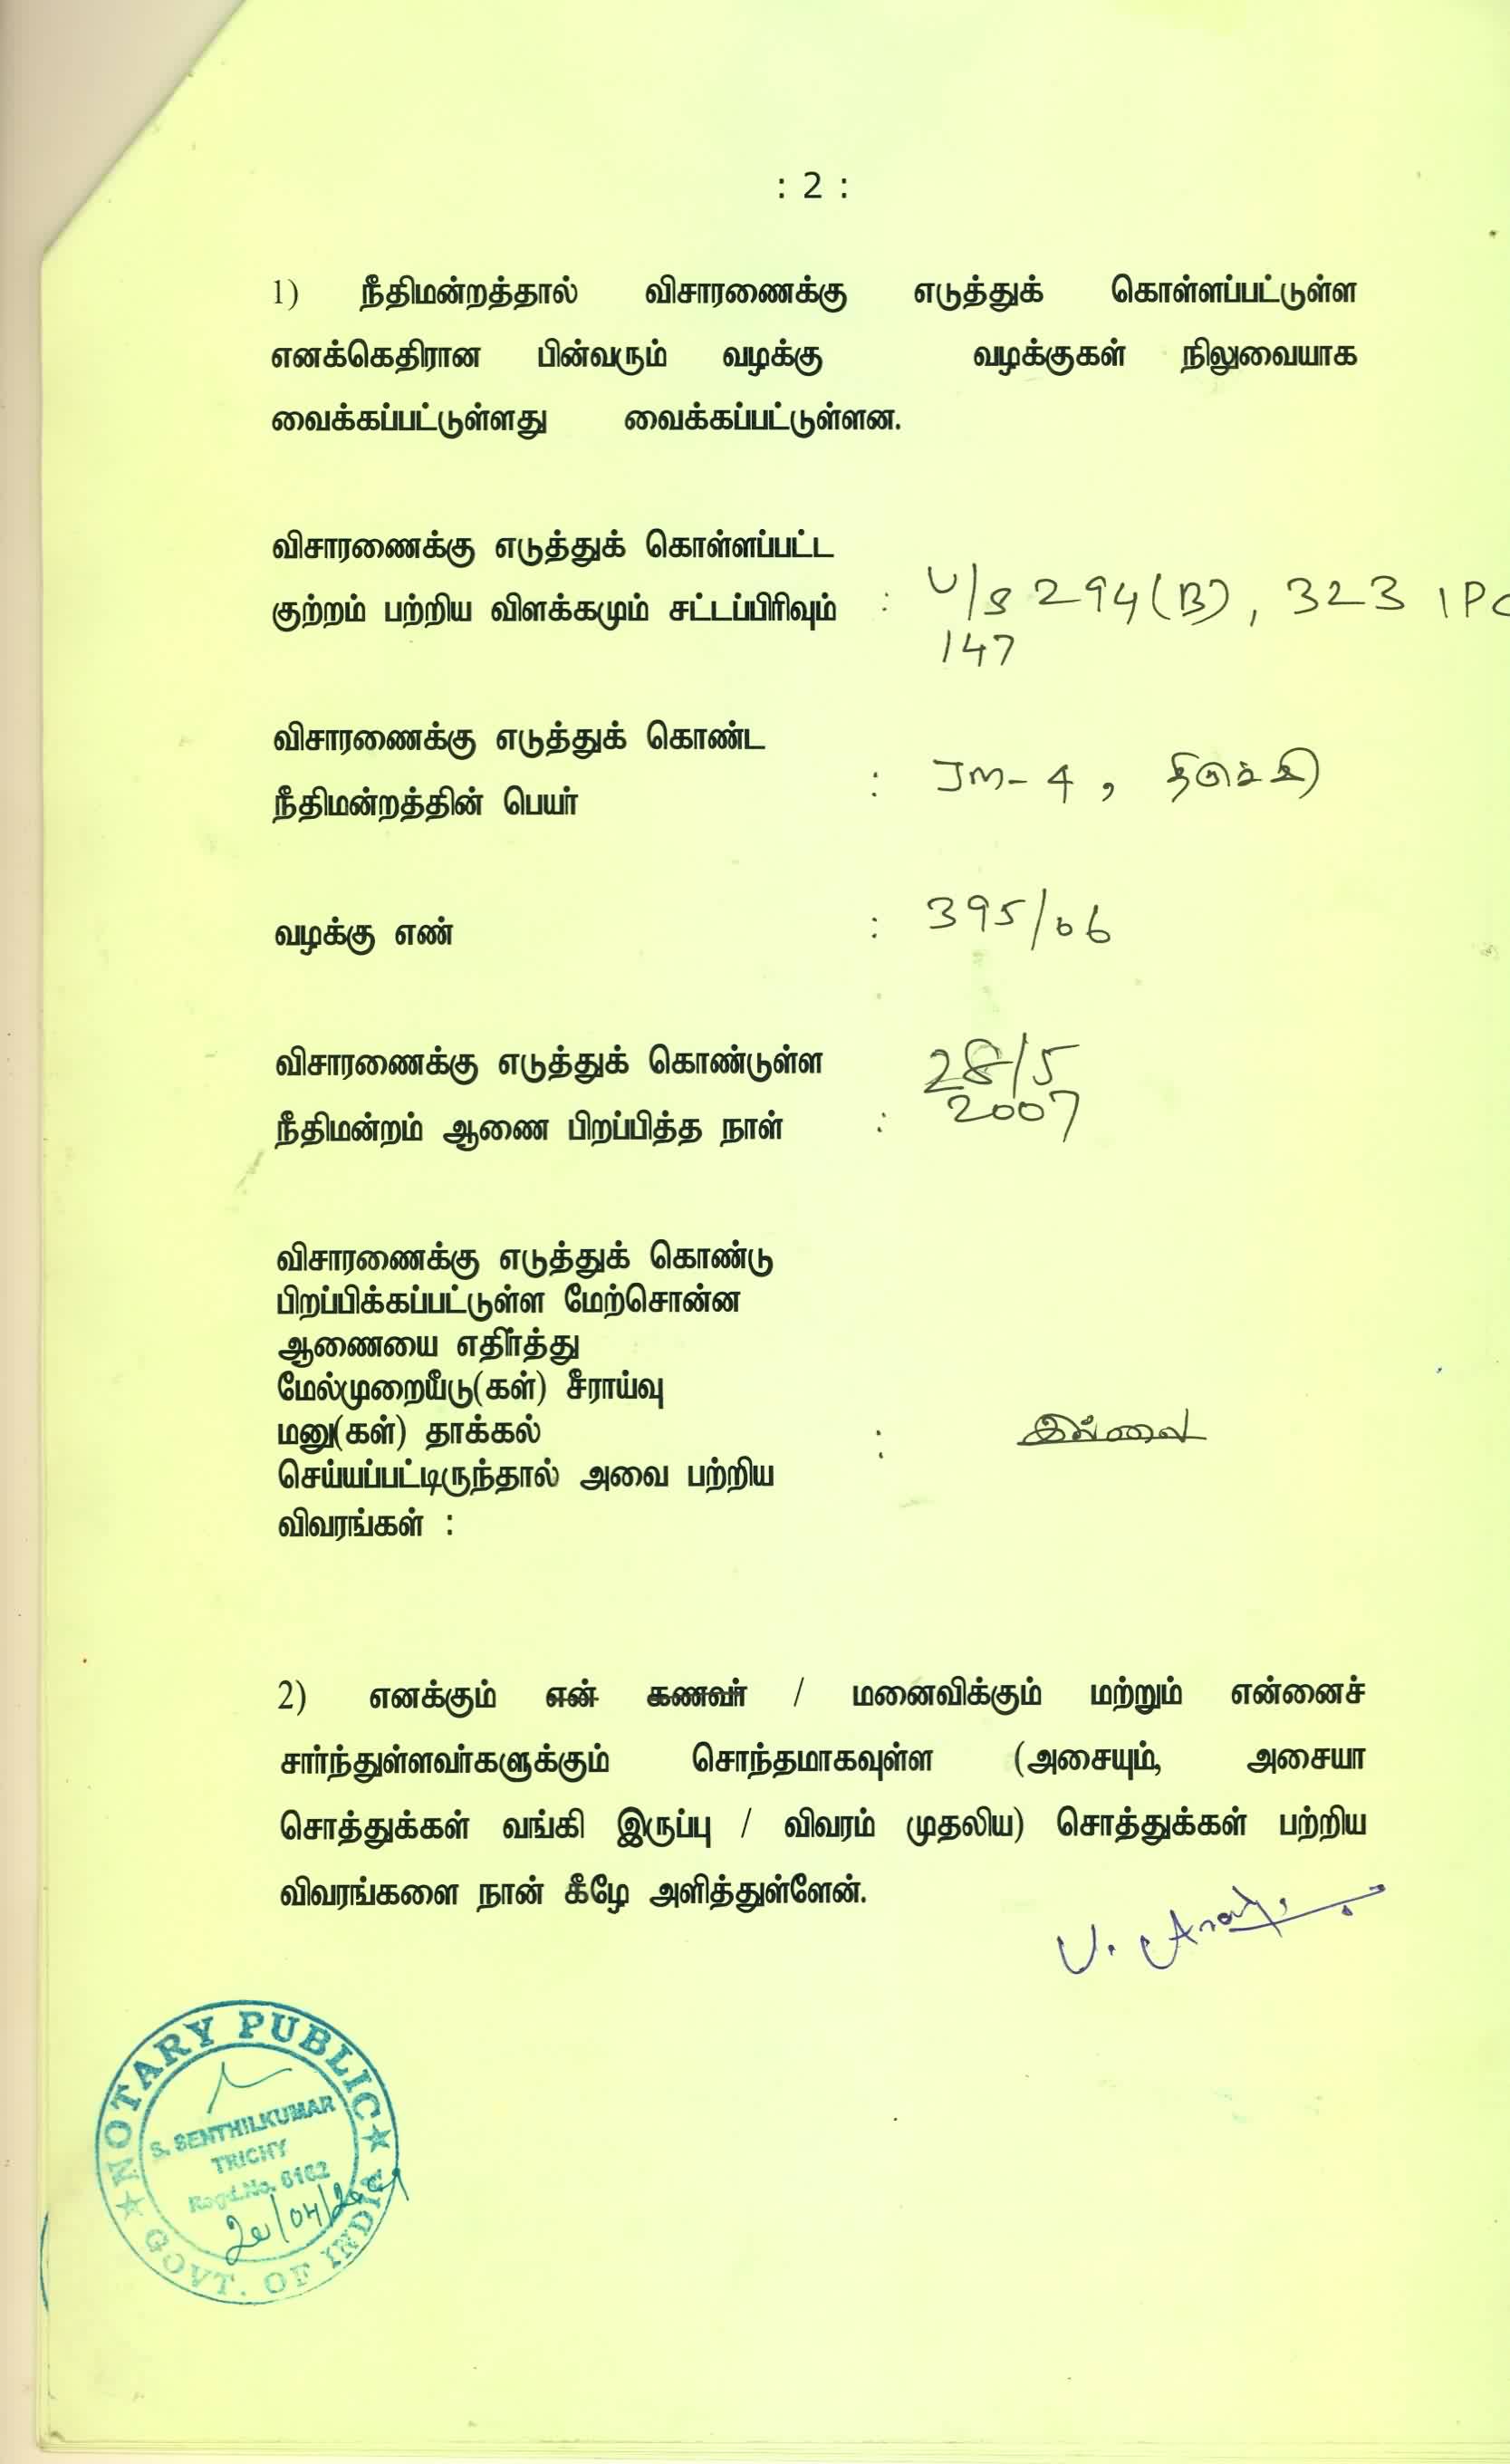 : 2 :
1) நீதிமன்றத்தால் விசாரணைக்கு எடுத்துக் கொள்ளப்பட்டுள்ள
எனக்கெதிரான பின்வரும் வழக்கு வழக்குகள் நிலுவையாக
வைக்கப்பட்டுள்ளது வைக்கப்பட்டுள்ளன.
விசாரணைக்கு எடுத்துக் கொள்ளப்பட்ட
குற்றம் பற்றிய விளக்கமும் சட்டப்பிரிவும் : U/s 294(B), 323 IPC
147
விசாரணைக்கு எடுத்துக் கொண்ட
நீதிமன்றத்தின் பெயர் : JM-4, திருச்சி
வழக்கு எண் : 395/06
விசாரணைக்கு எடுத்துக் கொண்டுள்ள 28/5
நீதிமன்றம் ஆணை பிறப்பித்த நாள் : 2007
விசாரணைக்கு எடுத்துக் கொண்டு
பிறப்பிக்கப்பட்டுள்ள மேற்சொன்ன
ஆணையை எதிர்த்து
மேல்முறையீடு(கள்) சீராய்வு
மனு(கள்) தாக்கல் : இல்லை
செய்யப்பட்டிருந்தால் அவை பற்றிய
விவரங்கள் :
2) எனக்கும் என் கணவர் / மனைவிக்கும் மற்றும் என்னைச்
சார்ந்துள்ளவர்களுக்கும் சொந்தமாகவுள்ள (அசையும், அசையா
சொத்துக்கள் வங்கி இருப்பு / விவரம் முதலிய) சொத்துக்கள் பற்றிய
விவரங்களை நான் கீழே அளித்துள்ளேன்.
NOTARY PUBLIC
S. SENTHILKUMAR
TRICHY
Regd.No. 6162
GOVT. OF INDIA